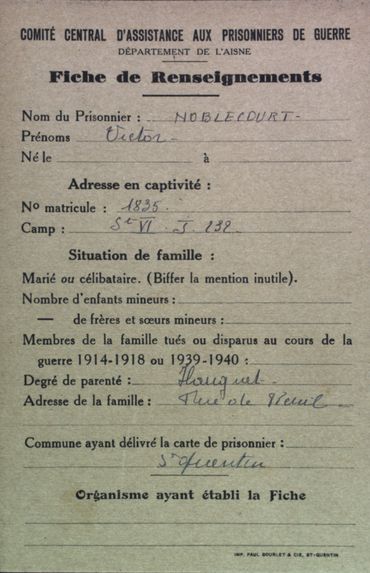 COMITÉ CENTRAL D'ASSISTANCE AUX PRISONNIERS DE GUERRE
DÉPARTEMENT DE L'AISNE
Fiche de Renseignements
Nom du Prisonnier : NOBLECOURT-
Prénoms Victor-
Né le à
Adresse en captivité :
No matricule : 1835.
Camp : St VI. J. 232.
Situation de famille :
Marié ou célibataire. (Biffer la mention inutile).
Nombre d'enfants mineurs :
— de frères et sœurs mineurs :
Membres de la famille tués ou disparus au cours de la
guerre 1914-1918 ou 1939-1940 :
Degré de parenté :
Adresse de la famille : Rue de
Commune ayant délivré la carte de prisonnier :
St Quentin
Organisme ayant établi la Fiche
IMP. PAUL BOURLET & CIE, ST-QUENTIN